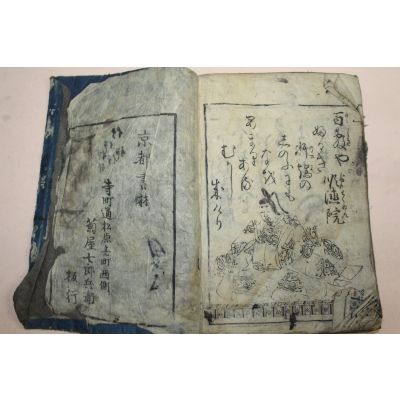 百敷や 順徳院
ふるき
軒端の
しのふにも
なを
あまり
ある
むかし
成けり
京都書林
寺町通松原上町西側
菊屋七郎兵衛
板行